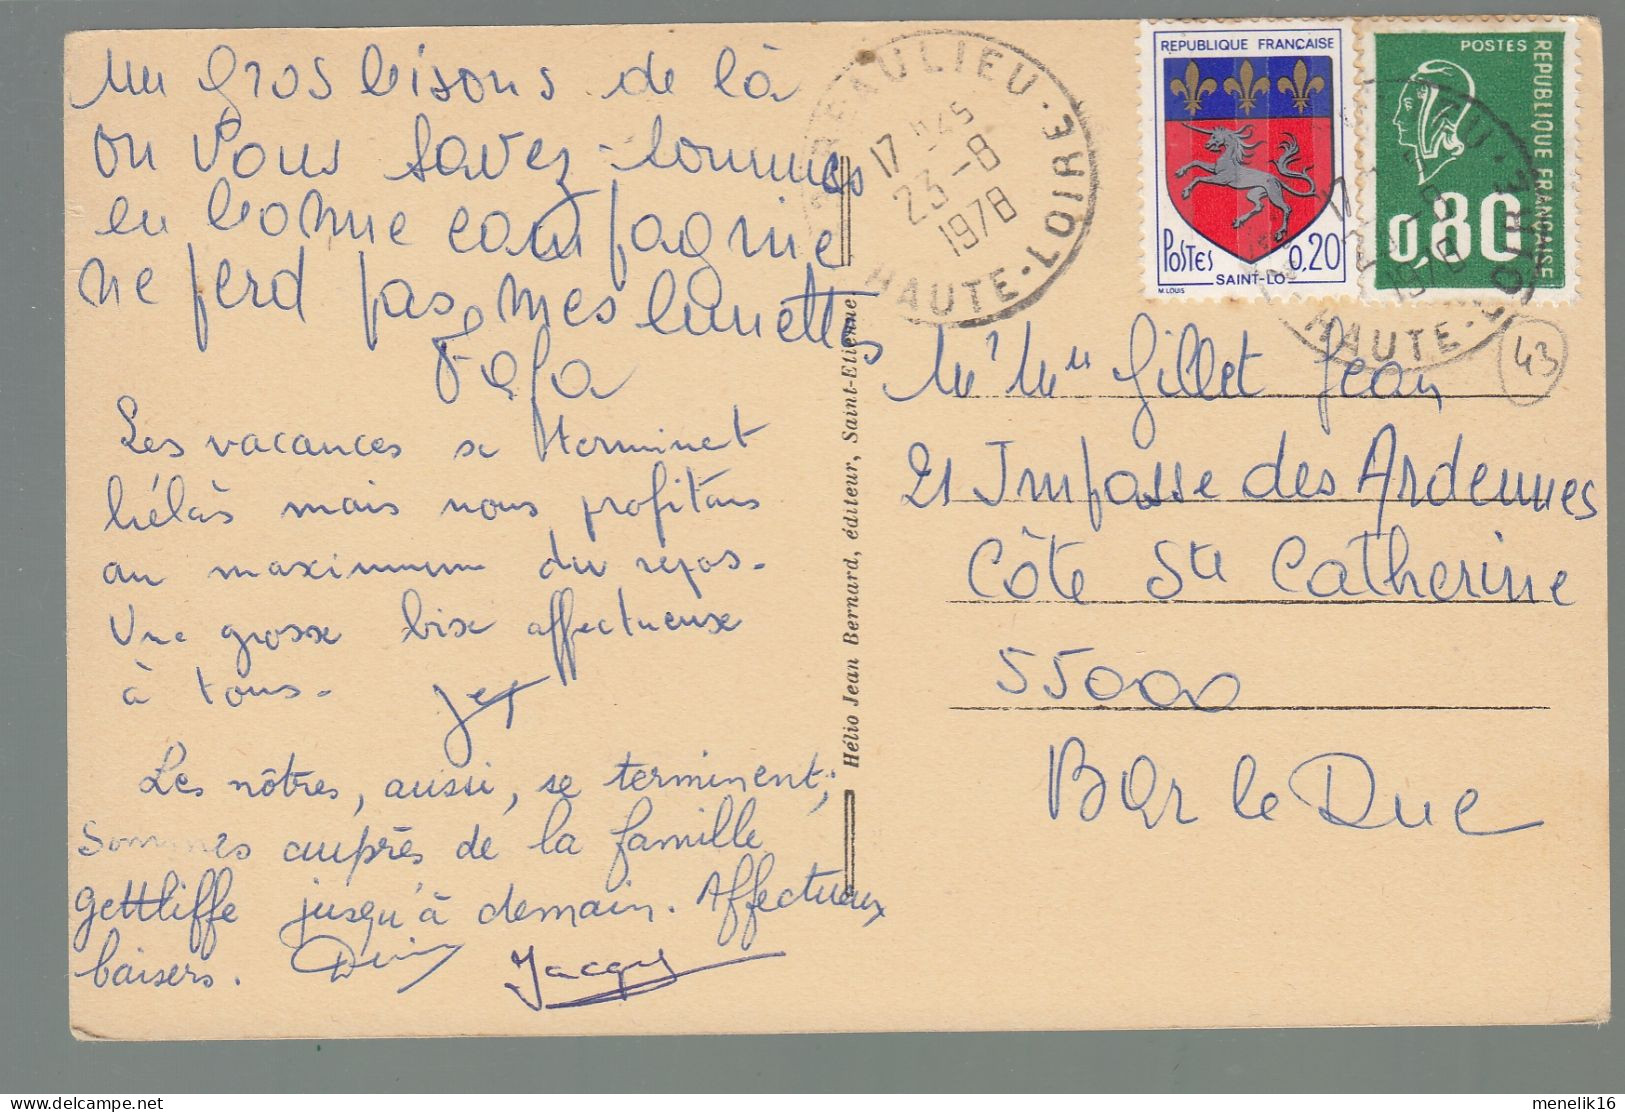 Un gros bisous de là
où Vous savez sommes
en bonne compagnie
ne perd pas mes lunettes
Fefa
Les vacances se terminent
hélas mais nous profitons
au maximum du repos.
Une grosse bise affectueuse
à tous.
Les nôtres, aussi, se terminent,
Sommes auprès de la famille
Gettliffe jusqu'à demain. Affectueux
baisers. Jacques
Hélio Jean Bernard, éditeur, Saint-Etienne
BEAULIEU
17 H45
23-8
1978
HAUTE-LOIRE
REPUBLIQUE FRANÇAISE
POSTES 0,20
SAINT-LO
M. LOUIS
POSTES
REPUBLIQUE FRANÇAISE
0,80
17
1978
HAUTE-LOIRE
43
Mr Mme Gillet Jean
21 Impasse des Ardennes
Côte Ste Catherine
55000
Bar le Duc
menelik16